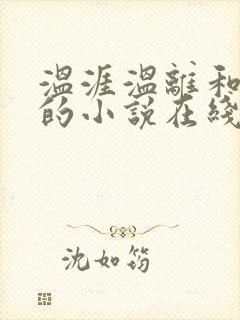 温涯温離和
的小说在綫
沈如筠